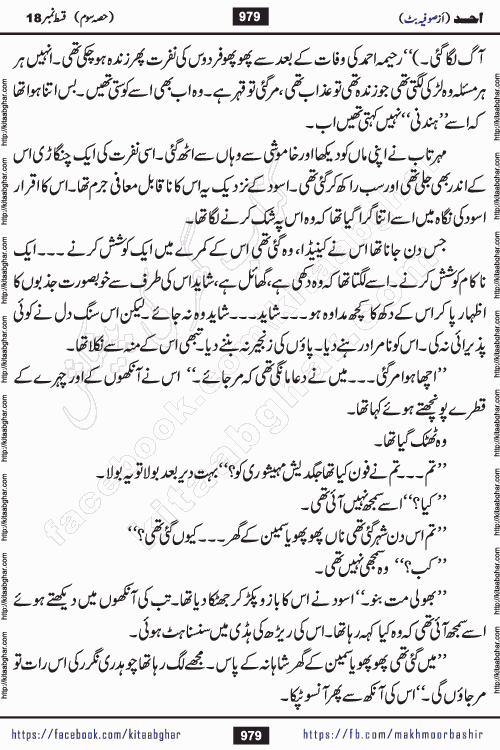 احد (از صوفیہ بٹ)
979
(حصہ سوم) قسط نمبر 18
آگ لگا گئی۔)‘‘ رحیمہ احمد کی وفات کے بعد سے پھوپھو فردوس کی نفرت پھر زندہ ہو چکی تھی۔ انہیں ہر
ہر مسئلہ وہ لڑکی لگتی تھی جو زندہ تھی تو عذاب تھی، مر گئی تو قہر ہے۔ وہ اب بھی اسے کوستی تھیں۔ بس اتنا ہوا تھا
کہ اسے ’’ہندنی‘‘ نہیں کہتی تھیں اب۔
مہرتاب نے اپنی ماں کو دیکھا اور خاموشی سے وہاں سے اٹھ گئی۔ اسی نفرت کی ایک چنگاڑی اس
کے اندر بھی جلی تھی اور سب راکھ کر گئی تھی۔ اسود کے نزدیک یہ اس کا ناقابل معافی جرم تھا۔ اس کا اقرار
اسود کی نگاہ میں اسے اتنا گرا گیا تھا کہ وہ اس پہ شک کرنے لگا تھا۔
جس دن جانا تھا اس نے کینیڈا، وہ گئی تھی اس کے کمرے میں ایک کوشش کرنے ۔۔۔ ایک
ناکام کوشش کرنے۔ اسے لگتا تھا کہ وہ دکھی ہے، گھائل ہے، شاید اس کی طرف سے خوبصورت جذبوں کا
اظہار پا کر اس کے دکھ کا کچھ مداوہ ہو ۔۔۔ شاید ۔۔۔ شاید وہ نہ جائے۔ لیکن اس سنگ دل نے کوئی
پذیرائی نہ کی۔ اس کو نامراد رہنے دیا۔ پاؤں کی زنجیر نہ بننے دیا۔ تبھی اس کے منہ سے نکلا تھا۔
’’اچھا ہوا مر گئی ۔۔۔ میں نے دعا مانگی تھی کہ مر جائے۔‘‘ اس نے آنکھوں کے اور چہرے کے
قطرے پونچھتے ہوئے کہا تھا۔
وہ ٹھنک گیا تھا۔
’’تم ۔۔۔ تم نے فون کیا تھا جگدیش مہیشوری کو؟‘‘ بہت دیر بعد بولا تو یہ بولا۔
’’کیا؟‘‘ اسے سمجھ نہیں آئی تھی۔
’’تم اس دن شہر گئی تھی ناں پھوپھو یاسمین کے گھر ۔۔۔ کیوں گئی تھی؟‘‘
’’کب؟‘‘ وہ سمجھی نہیں تھی۔
’’بھولی مت بنو۔‘‘ اسود نے اس کا بازو پکڑ کر جھٹکا دیا تھا۔ تب کی آنکھوں میں دیکھتے ہوئے
اسے سمجھ آئی تھی کہ وہ کیا کہہ رہا تھا۔ اس کی ریڑھ کی ہڈی میں سنسناہٹ ہوئی۔
’’میں گئی تھی پھوپھو یاسمین کے گھر شاہانہ کے پاس۔ مجھے لگ رہا تھا چوہدری نگر کی اس رات تو
مر جاؤں گی۔‘‘ اس کی آنکھ سے پھر آنسو ٹپکا۔
https://facebook.com/kitaabghar
979
https://fb.com/makhmoorbashir
http://kitaabghar.com
http://kitaabghar.com
facebook.com/kitaabghar
kitaabghar.com